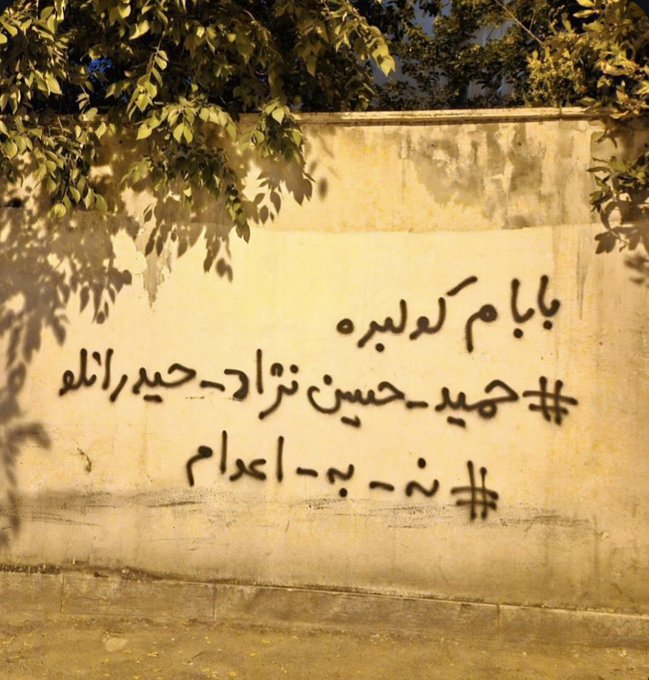 بابام کولبره
#حمید_حسین نژاد_حیدرانلو
#نه_به_اعدام